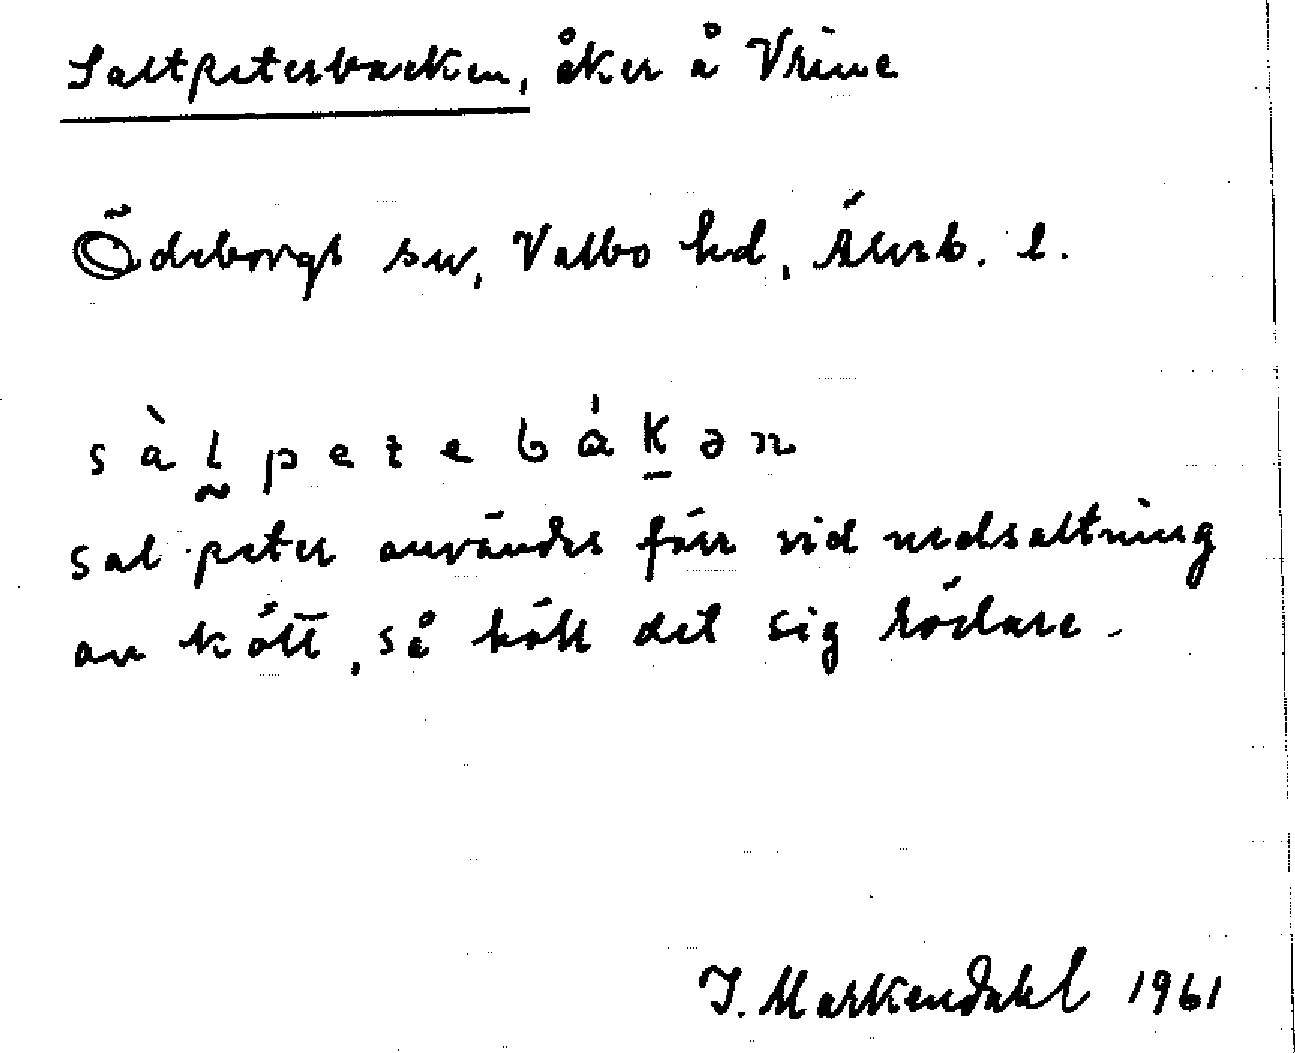 Saltpeterbacken, åker å Vrine
Ödeborgs sn, Valbo hd, Älvsb. l.
sàl̰petebák̠ən
salpeter användes förr vid nedsaltning
av kött, så höll det sig rödare.
I. Markendahl 1961